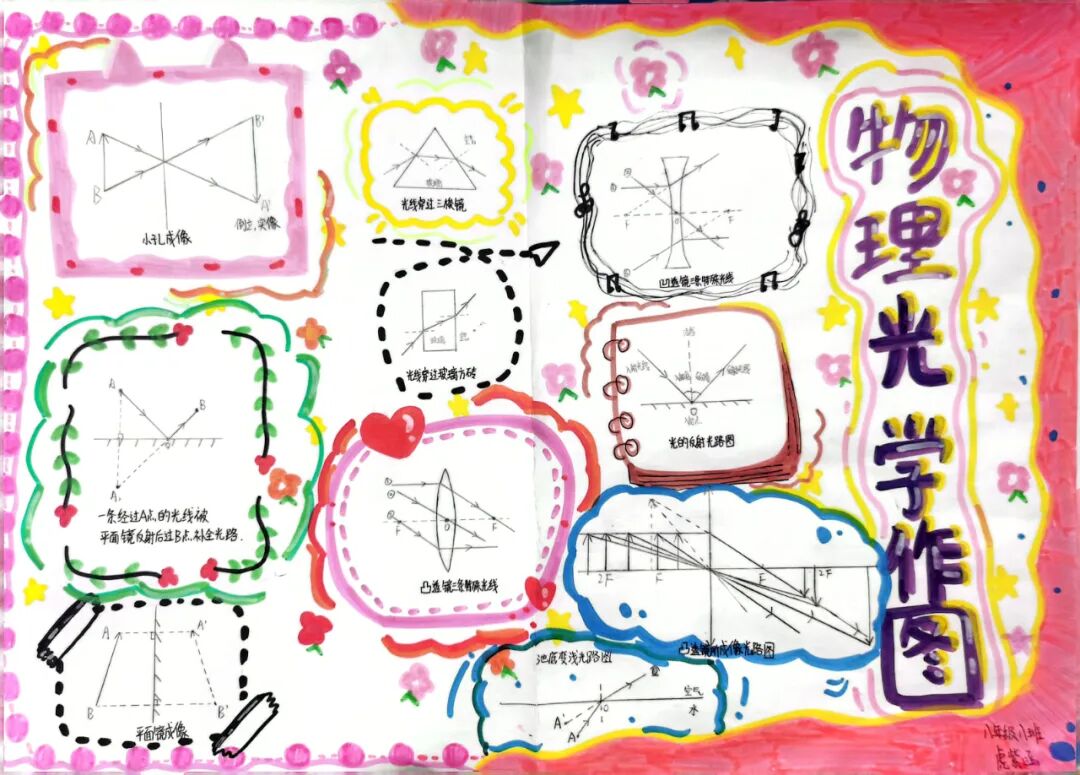 物理光学作图
A
B'
B
A'
倒立,实像
小孔成像
空气
玻璃
光线穿过三棱镜
①
②
F
O
F
A'
③
凹透镜三条特殊光线
玻璃
空气
光线穿过玻璃方砖
法线
入射光线
入射角
反射角
反射光线
O
入射点
光的反射光路图
A
B
O
A,
一条经过A点的光线被
平面镜反射后过B点.补全光路.
①
②
③
F
O
F
凸透镜三条特殊光线
2F
F
F
2F
凸透镜成像光路图
A
A'
B
B'
平面镜成像
池底变浅光路图
空气
O
水
A'
A
八年级八班
虎紫函